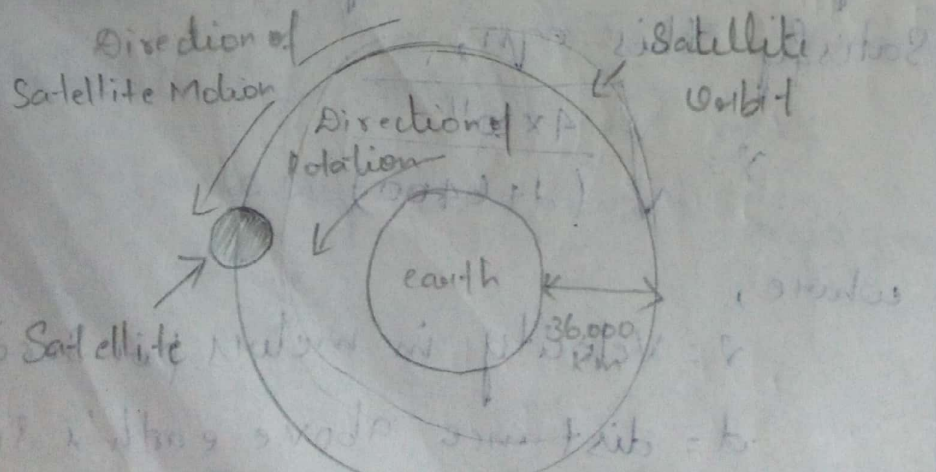 Direction of
Satellite Motion
Satellite
Orbit
Direction of
rotation
earth
36,000
km
Satellite